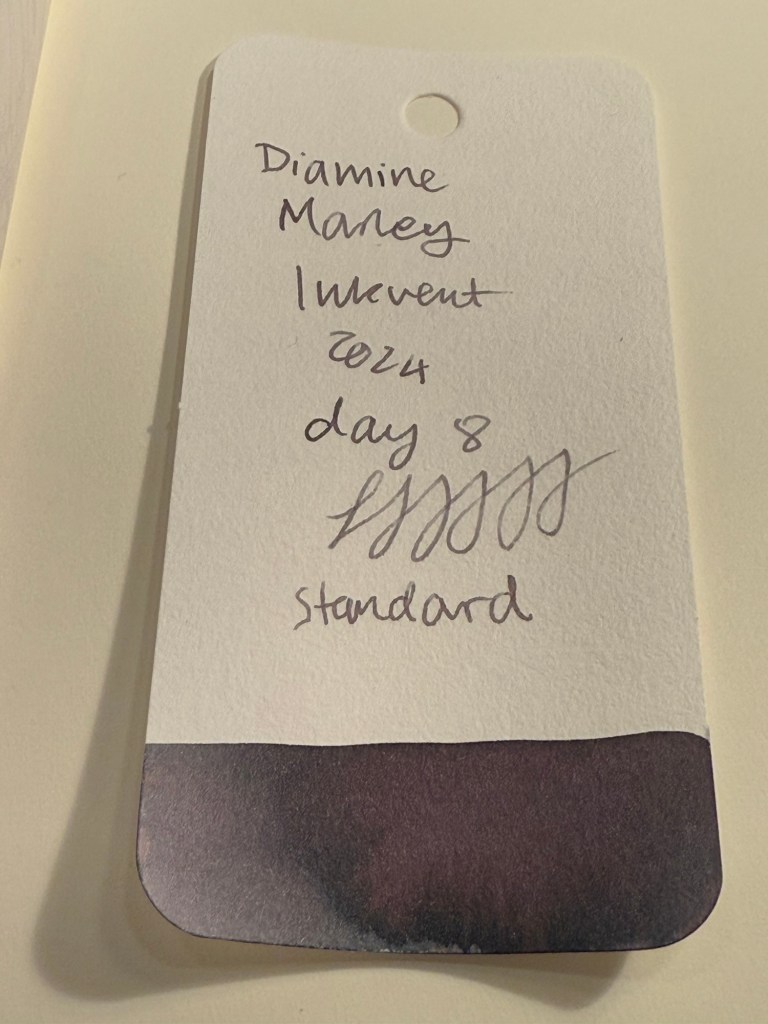 Diamine
Marley
Inkvent
2024
day 8
standard